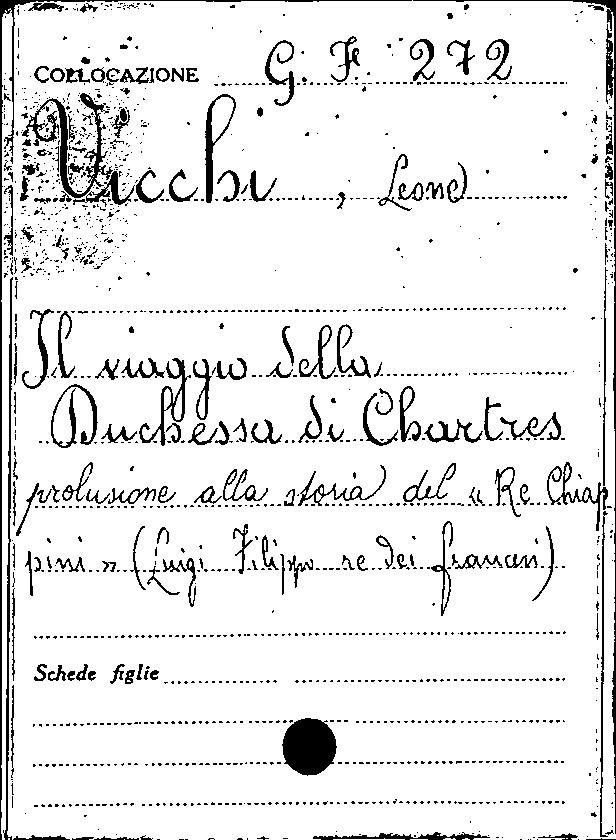 COLLOCAZIONE G. F. 272
Vicchi, Leone
Il viaggio della
Duchessa di Chartres
prolusione alla storia del « Re Chiap
pini » (Luigi Filippo re dei francesi)
Schede figlie